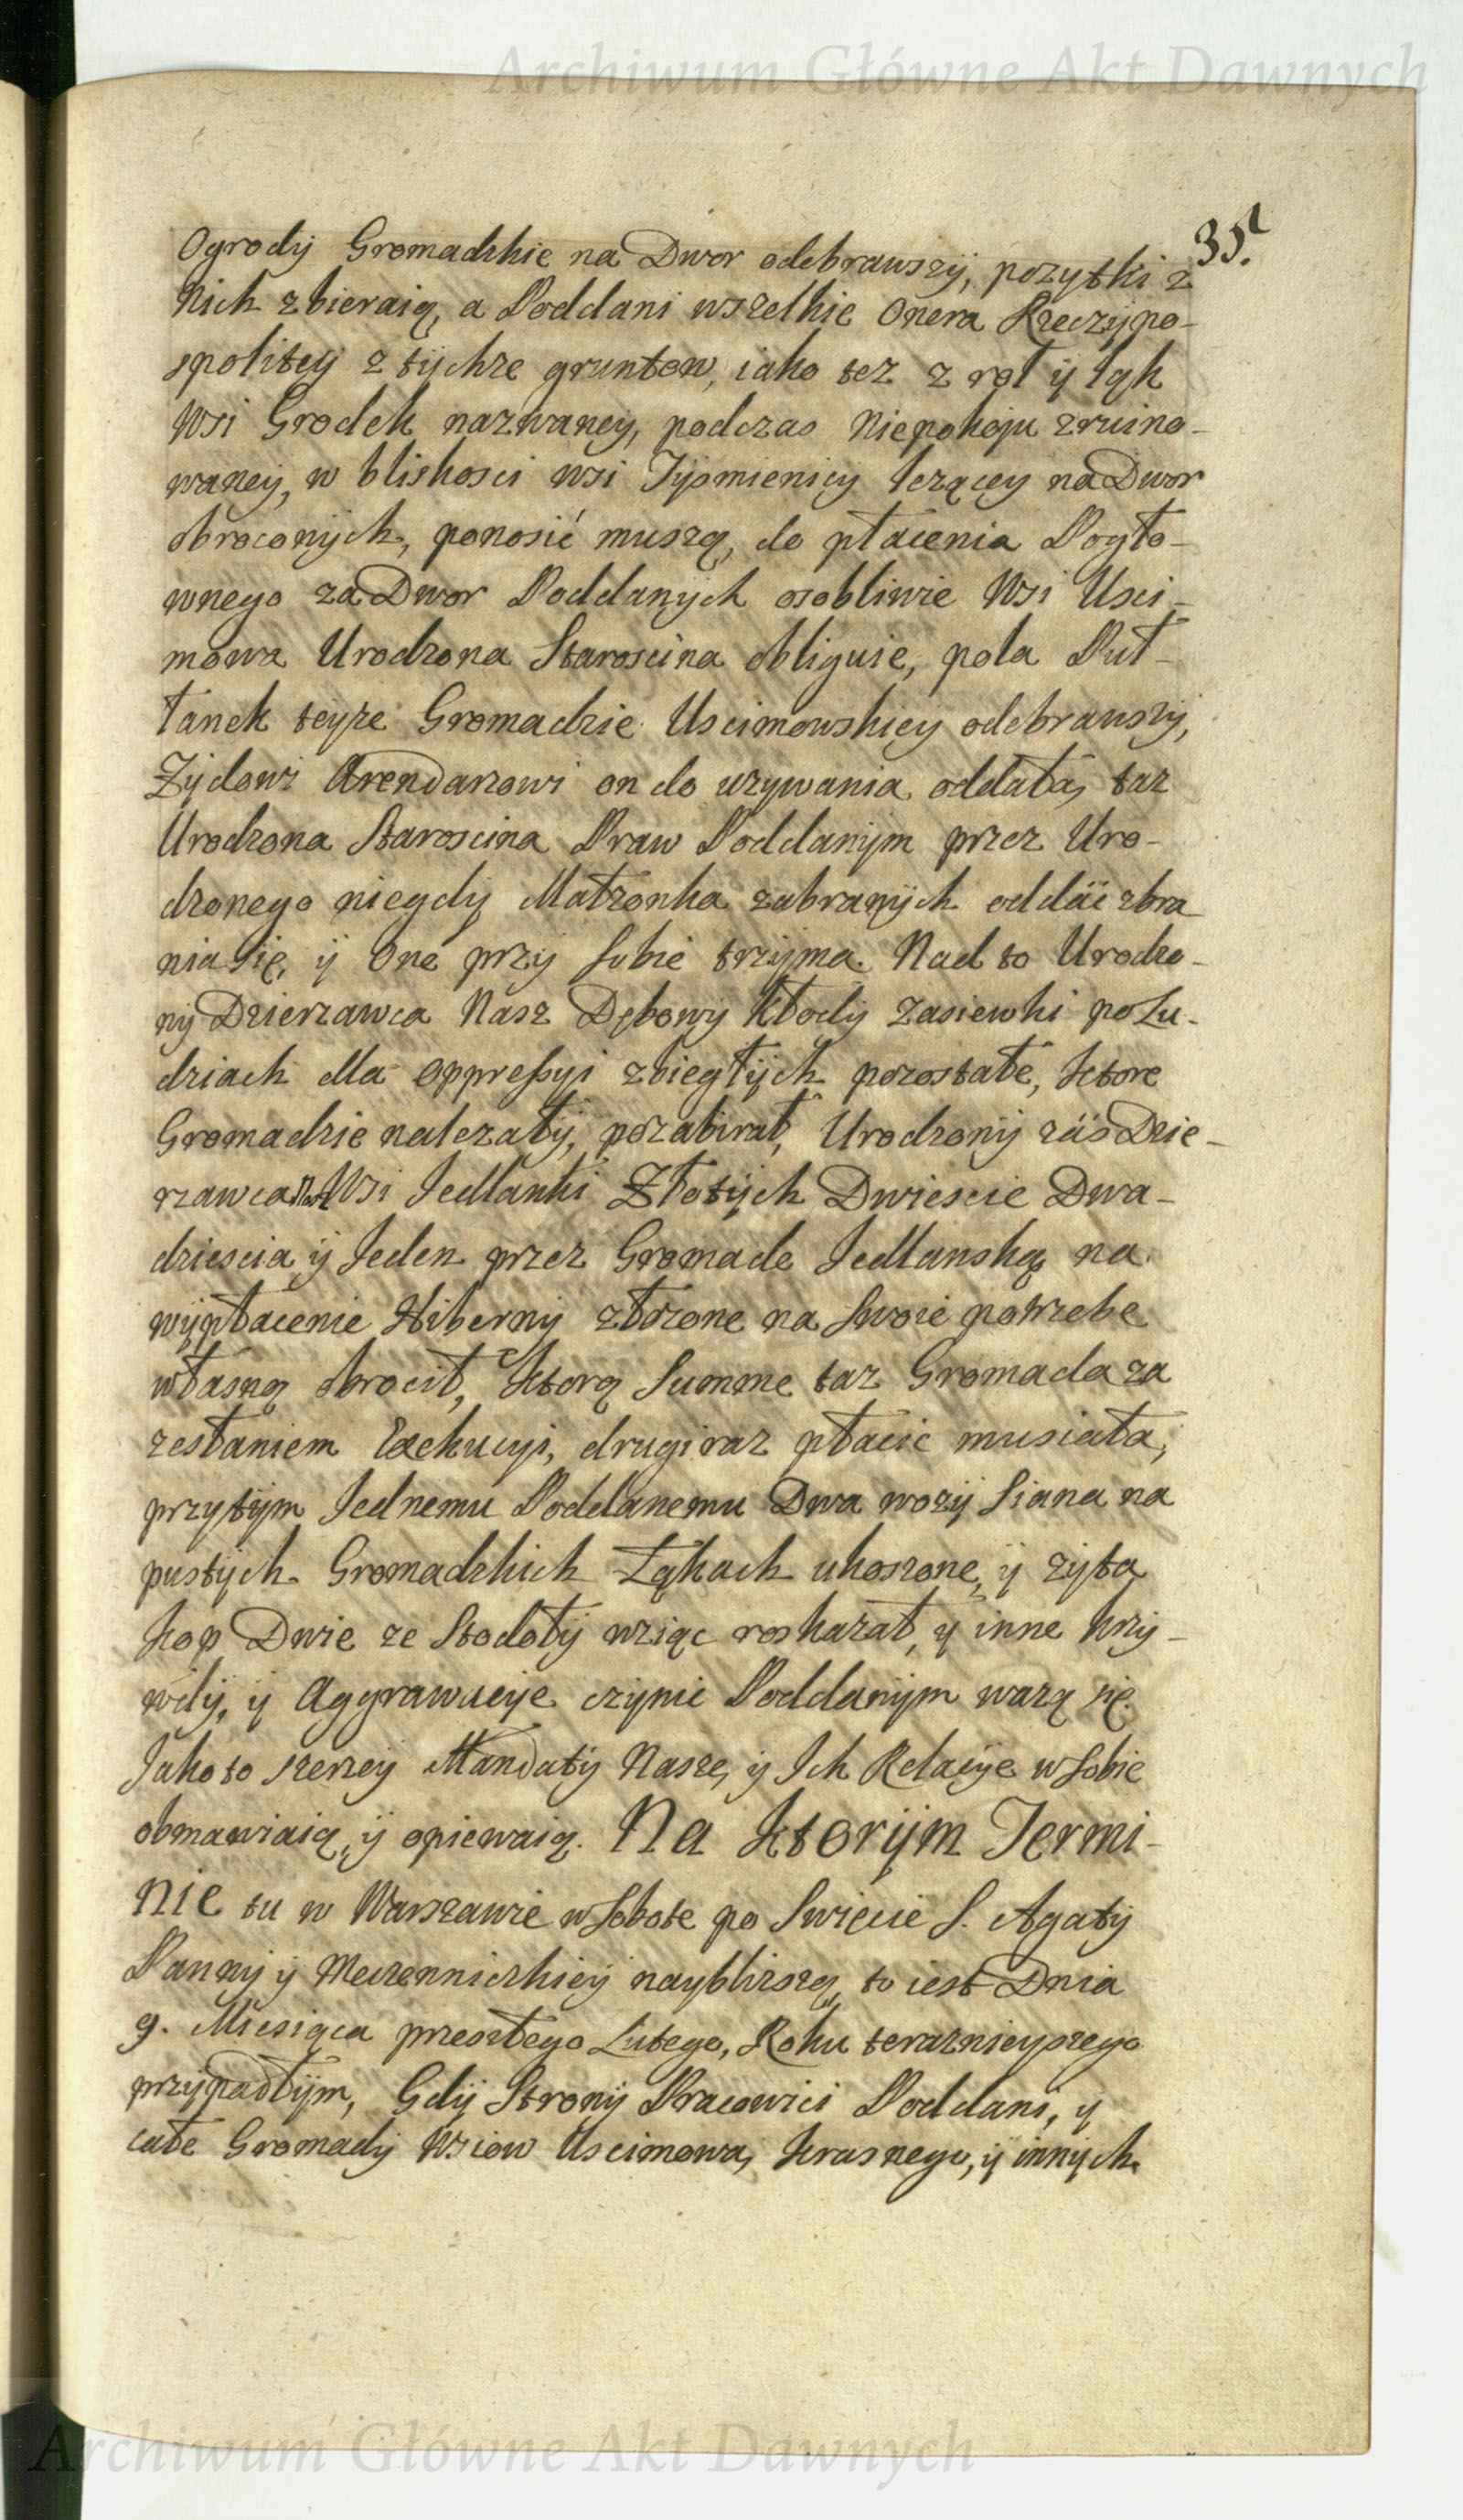 Archiwum Główne Akt Dawnych
35.
Ogrody Gromadzkie na Dwor odebrawszÿ, pozytki z
Nich zbieraią, a Poddani wszelkie Onera Rzeczÿpo-
spolitey z tÿchze gruntow, iako tez z rol ÿ łąk
Wsi Grodek nazwaney, podczas Niepokoju zruino-
waney, w bliskosci wsi Tÿsmienicy lezącey na Dwor
obroconÿch, ponosić muszą, do płacenia Pogło-
wnego za Dwor Poddanych osobliwie Wsi Usci-
mowa Urodzona Starościna obliguie, pola Puł-
łanek teyze Gromadzie Uscimowskiey odebrawszÿ,
Zÿdowi Arendarzowi on do uzywania oddała, taz
Urodzona Starościna Praw Poddanÿm przez Uro-
dzonego niegdÿ Małzonka zabranÿch oddać zbra
nia się, ÿ One przy sobie trzÿma. Nad to Urodzo-
nÿ Dzierzawca Nasz Dębowÿ kłodÿ zasiewki po Lu-
dziach dla oppressyi zbiegłÿch pozostałe, ktore
Gromadzie nalezałÿ, pozabirał, Urodzonÿ záś Dzie-
rzawca Wsi Jedlanki Złotÿch Dwieście Dwa-
dziescia ÿ Jeden przez Gromade Jedlanską na
wÿpłacenie Hibernÿ złozone na swoie potrzebe
własną obrocił, ktorą Summe taz Gromada za
zesłaniem Exekucyi, drugi raz płacic musiała,
przytÿm Jednemu Poddanemu Dwa wozÿ siana na
pustÿch Gromadzkich Łąkach ukoszone, ÿ zyta
kop Dwie ze Stodołÿ wziąc roskazał, ÿ inne krzÿ-
wdÿ, ÿ Aggrawacÿe czÿnic Poddanÿm wazą się.
Jako to szerzeÿ Mandatÿ Nasze, ÿ Ich Relacÿe w sobie
obmawiaią, ÿ opiewaią. Na ktorÿm Termi-
nie tu w Warszawie w Sobote po Swięcie S. Agatÿ
Pannÿ ÿ Meczenniczkieÿ naybliszszą, to iest Dnia
9. Miesiąca przeszłego Lutego, Roku teraznieyszego
przypadłÿm, Gdÿ Stronÿ Pracowici Poddani, ÿ
całe Gromadÿ Wsiow Uscimowa, Krasnego, ÿ innych
Archiwum Główne Akt Dawnych